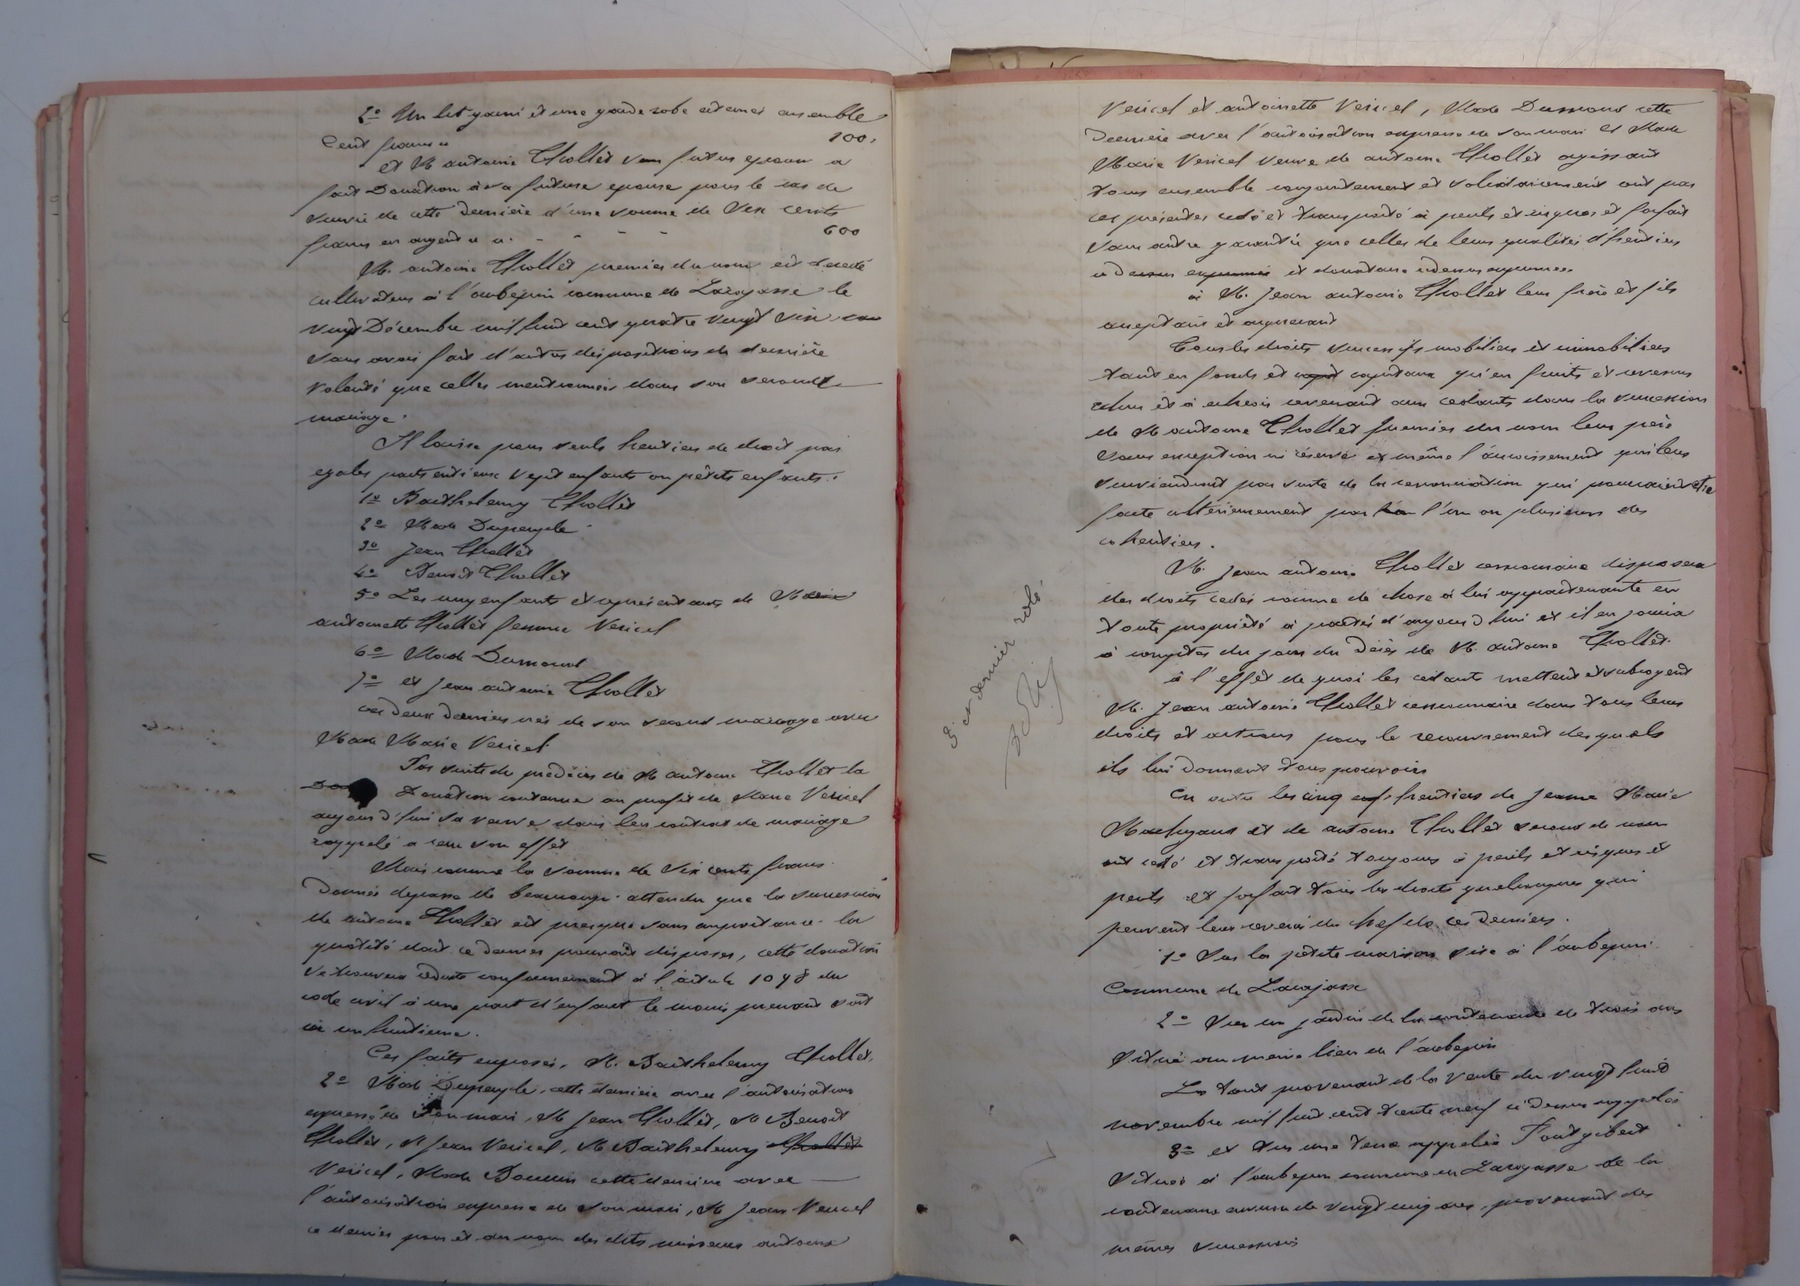 2° Un lit garni et une garde robe estimés ensemble
Cent francs 100.
Et M antoine Thollet son futur epoux a
fait Donation à sa future epouse pour le cas de
survie de cette dernière d'une somme de Six cents
francs en argent 600
M. antoine Thollet premier du nom est decedé
cultivateur à l'aubépin commune de Larajasse le
vingt Décembre mil huit cent quatre vingt six
sans avoir fait d'autres dispositions de dernière
volonté que celles mentionnées dans son second
mariage.
Il laisse pour seuls heritiers de droit par
egales parts entr'eux sept enfants ou petits enfants :
1° Barthelemy Thollet
2° Made Dupeyple
3° Jean Thollet
4° Benoit Thollet
5° Les cinq enfants et représentants de Marie
antoinette Thollet femme Vericel
6° Made Dumond
7° et Jean antoine Thollet
ces deux derniers nés de son second mariage avec
Made Marie Vericel.
Par suite du prédécès de M antoine Thollet la
Donation contenue au profit de Marie Vericel
aujourd'hui sa veuve dans leur contrat de mariage
rappelé a reçu son effet
Mais comme la somme de Six cents francs
Donnée depasse de beaucoup attendu que la succession
de antoine Thollet est presque sans importance la
quotité dont ce dernier pouvait disposer, cette donation
se trouvera réduite conformement à l'article 1098 du
code civil à une part d'enfant le moins prenant soit
à un huitieme.
Ces faits exposés, M. Barthelemy Thollet,
2° Made Dupeyple, cette dernière avec l'autorisation
expresse de son mari, M Jean Thollet, M Benoit
Thollet, M Jean Vericel, M Barthelemy Thollet
Vericel, Made Bouvier cette dernière avec
l'autorisation expresse de son mari, M Jean Vericel
ce dernier pour et au nom des dits mineurs antoine
Vericel et antoinette Vericel, Made Dumond cette
dernière avec l'autorisation expresse de son mari et Made
Marie Vericel veuve de antoine Thollet agissant
tous ensemble conjointement et solidairement ont par
ces présentes cédé et transporté à perils et risques et forfait
sans autre garantie que celles de leurs qualités d'héritiers
ci dessus exprimés et donataire ci dessus exprimées
à M. Jean antoine Thollet leur frère et fils
acceptant et acquerant
Tous les droits successifs mobiliers et immobiliers
tant en fonds et capitaux qu'en fruits et revenus
echus et à echoir revenant aux cedants dans la succession
de M antoine Thollet premier du nom leur père
sans exception ni réserve et même l'accroissement qui leur
surviendrait par suite de la renonciation qui pourrait etre
faite ultérieurement par l'un ou plusieurs des
cohéritiers.
M. Jean antoine Thollet cessionnaire disposera
des droits cédés comme de chose à lui appartenante en
toute propriété à partir d'aujourd'hui et il en jouira
à compter du jour du Décès de M. antoine Thollet.
à l'effet de quoi les cedants mettent et subrogent
M. Jean antoine Thollet cessionnaire dans tous leurs
droits et actions pour le recouvrement desquels
ils lui donnent tous pouvoirs
En outre les cinq héritiers de Jeanne Marie
et de antoine Thollet second du nom
ont cédé et transporté toujours à perils et risques et
perils et forfait tous les droits quelconques qui
peuvent leur revenir du chef de ces derniers.
1° Sur la petite maison sise à l'aubepin
Commune de Larajasse
2° Sur un jardin de la contenance de trois ares
situé au même lieu de l'aubepin
Le tout provenant de la vente du vingt huit
novembre mil huit cent trente neuf ci dessus rappelée
3° et Sur une terre appelée Fontgibert
située à l'aubepin commune de Larajasse de la
contenance environ de vingt cinq ares, provenant des
mêmes successions
5e et dernier role